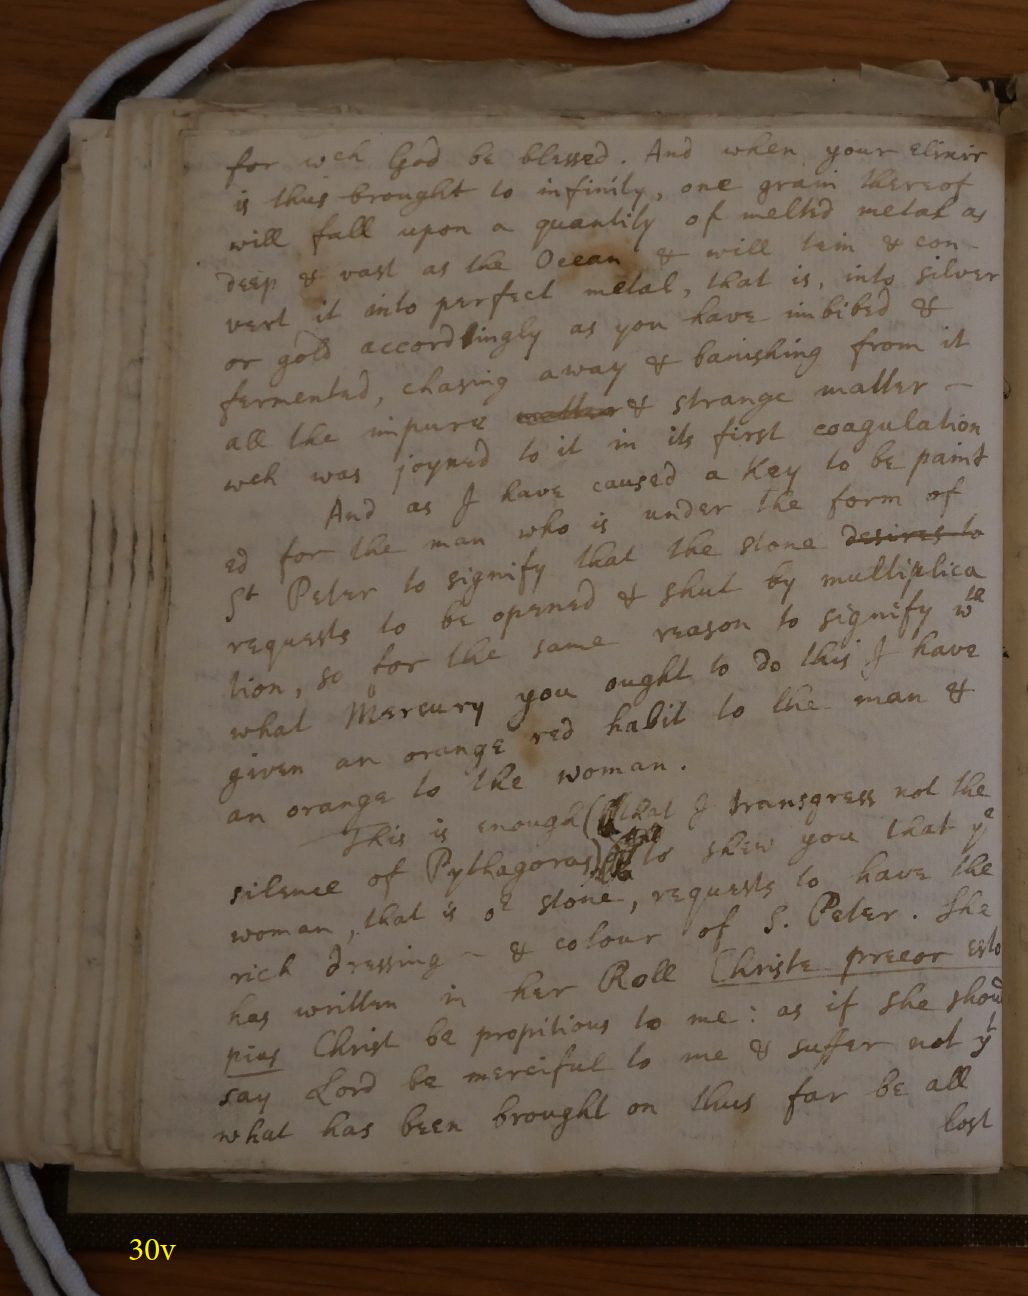 for wch God be blessed. And when your elixir
is thus brought to infinity, one grain thereof
will fall upon a quantity of melted metal as
deep & vast as the Ocean & will tein & con-
vert it into perfect metal, that is, into silver
or gold accordingly as you have imbibed &
fermented, chasing away & banishing from it
all the impure matter & strange matter -
wch was joyned to it in its first coagulation
And as I have caused a Key to be paint
ed for the man who is under the form of
St Peter to signify that the stone desires to
requests to be opened & shut by multiplica
tion, so for the same reason to signify wth
what Mercury you ought to do this I have
given an orange red habit to the man &
an orange to the woman.
This is enough (that I transgress not the
silence of Pythagoras) to shew you that ye
woman, that is oe stone, requests to have the
rich dressing - & colour of S. Peter. She
has written in her Roll Christe precor esto
pius Christ be propitious to me: as if she should
say Lord be merciful to me & suffer not yt
what has been brought on thus far be all
lost
30v